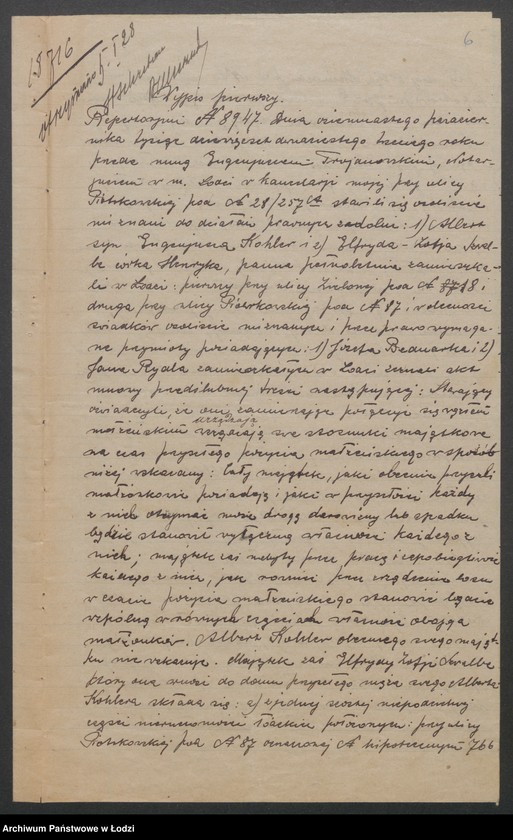 6
Wypis pierwszy.
Repertorjum № 8947. Dnia osiemnastego paździer-
nika tysiąc dziewięćset dwudziestego trzeciego roku
przede mną Eugenjuszem Trojanowskim, Notar-
juszem w m. Łodzi w kancelarji mojej przy ulicy
Piotrkowskiej pod № 28/257 stawili się osobiście
mi znani do działań prawnych zdolni: 1) Albert
syn Eugenjusza Kohler i 2) Elfryda-Zofja Szwal-
be córka Henryka, panna pełnoletnia zamieszka-
li w Łodzi: pierwszy przy ulicy Zielonej pod № 18 i
druga przy ulicy Piotrkowskiej pod № 87, i w obecności
świadków osobiście mi znanych i przez prawo wymaga-
ne przymioty posiadających: 1) Józefa Bednarka i 2)
Jana Rydla zamieszkałych w Łodzi zeznali akt
umowy przedślubnej treści następującej: Stawający
oświadczyli, że oni zamierzając połączyć się węzłem
urządzają
małżeńskim swe stosunki majątkowe
na czas przyszłego pożycia małżeńskiego w sposób
niżej wskazany: cały majątek, jaki obecnie przyszli
małżonkowie posiadają i jaki w przyszłości każdy
z nich otrzymać może drogą darowizny lub spadku
będzie stanowić wyłączną własność każdego z
nich; majątek zaś nabyty przez pracę i zapobiegliwość
każdego z nich, jak również przez zrządzenie losu
w czasie pożycia małżeńskiego stanowić będzie
wspólną w równych częściach własność obojga
małżonków. Albert Kohler obecnego swego mająt-
ku nie wskazuje. Majątek zaś Elfrydy Zofji Szwalbe
który ona wnosi do domu przyszłego męża swego Alberta
Kohlera składa się: a) z jednej szóstej niepodzielnej
części nieruchomości łódzkiej położonej przy ulicy
Piotrkowskiej pod № 87 oznaczonej № hipotecznym 766
Archiwum Państwowe w Łodzi